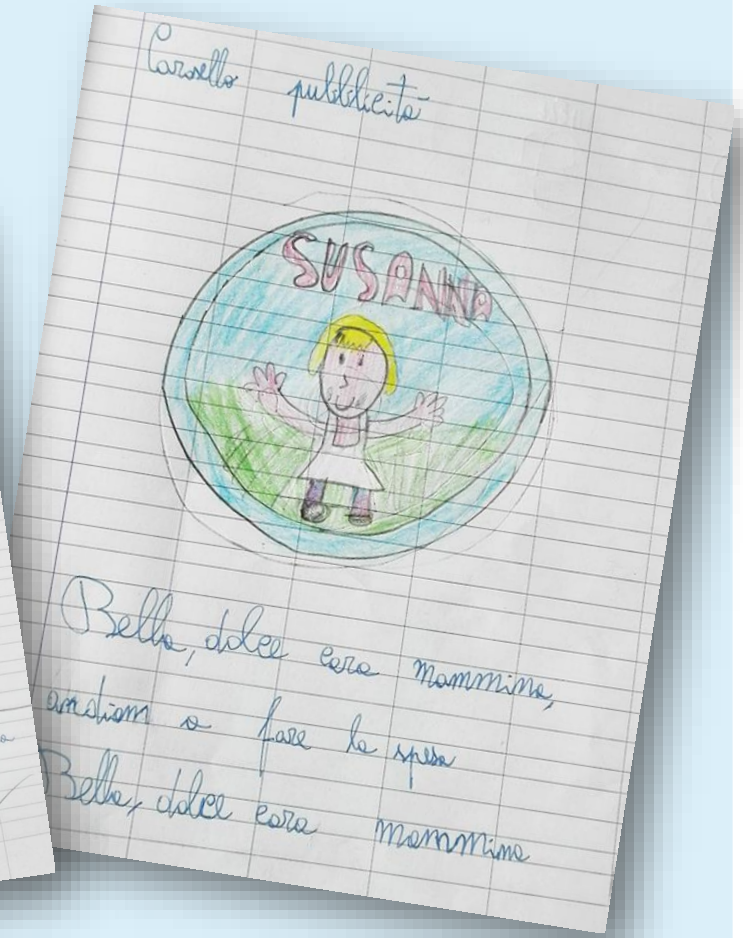 Carosello pubblicità
SUSANNA
Bella, dolce cara mammina,
andiam a fare la spesa
Bella, dolce cara mammina